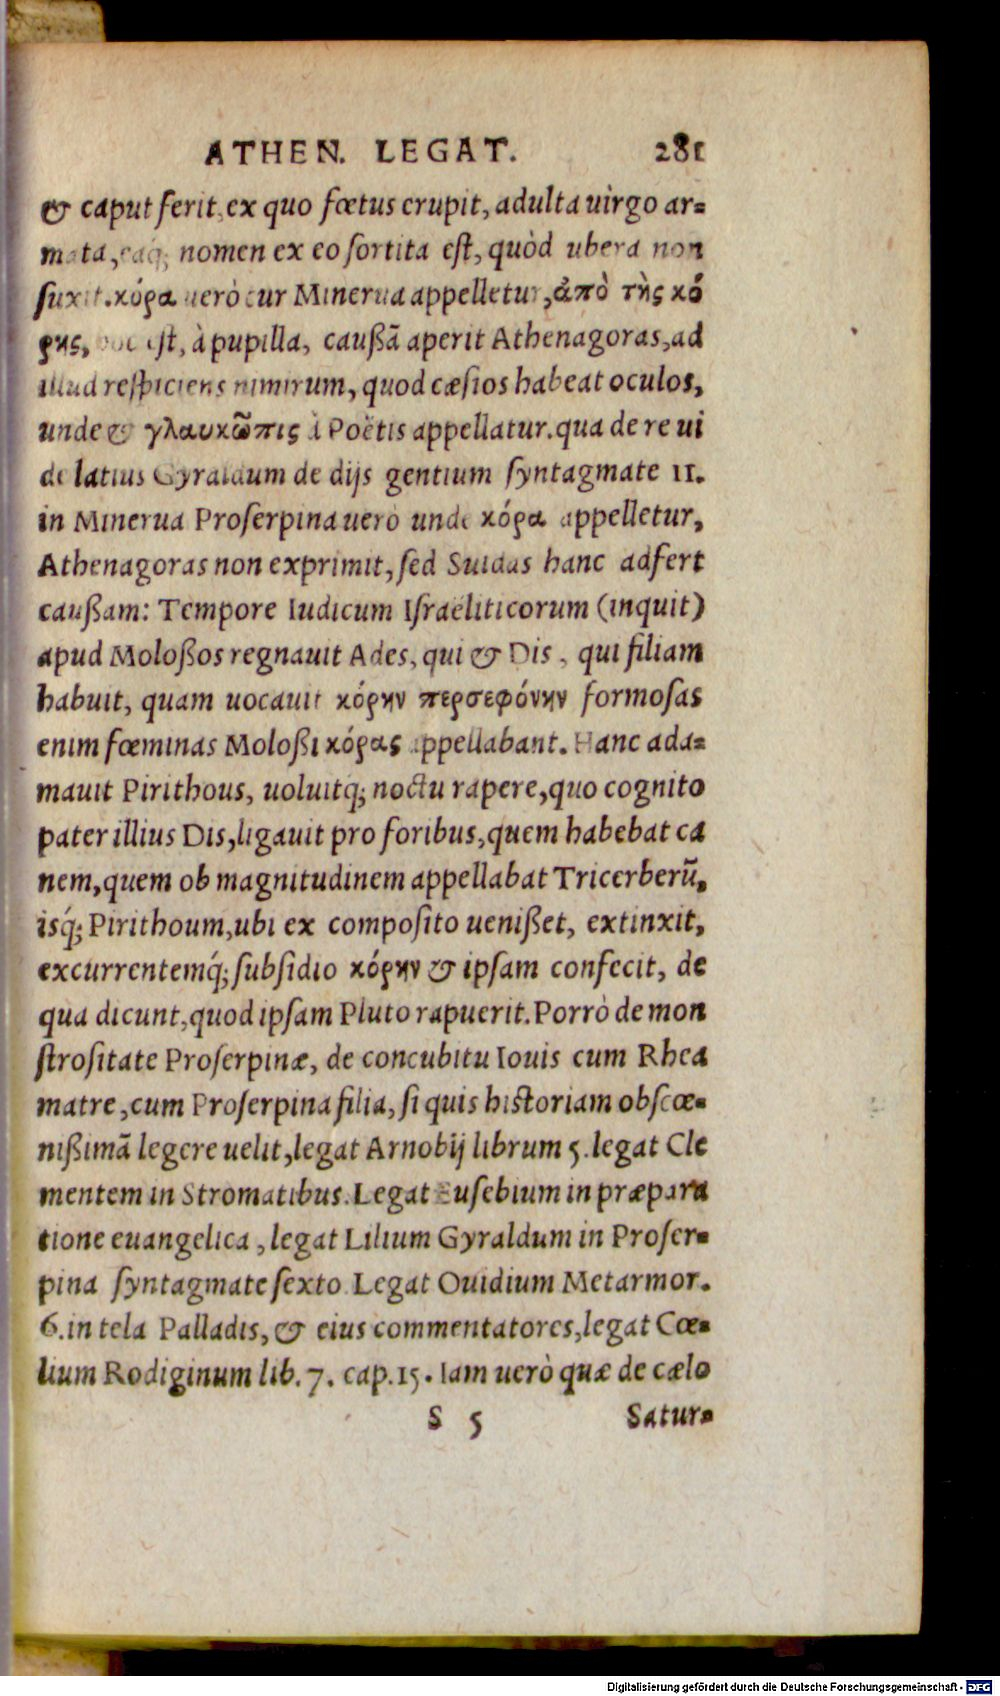 ATHEN. LEGAT. 281
& caput ferit, ex quo fœtus erupit, adulta uirgo ar=
mata, eaq; nomen ex eo sortita est, quòd ubera non
suxit. κόρα uerò cur Minerua appelletur, ἀπὸ τῆς κό
ρης, hoc est, à pupilla, caußã aperit Athenagoras, ad
illud respiciens nimirum, quod cæsios habeat oculos,
unde & γλαυκῶπις à Poëtis appellatur. qua de re ui
de latius Gyraldum de dijs gentium syntagmate 11.
in Minerua Proserpina uerò unde κόρα appelletur,
Athenagoras non exprimit, sed Suidas hanc adfert
caußam: Tempore Iudicum Israëliticorum (inquit)
apud Moloßos regnauit Ades, qui & Dis, qui filiam
habuit, quam uocauit κόρην περσεφόνην formosas
enim fœminas Moloßi κόρας appellabant. Hanc ada=
mauit Pirithous, uoluitq; noctu rapere, quo cognito
pater illius Dis, ligauit pro foribus, quem habebat ca
nem, quem ob magnitudinem appellabat Tricerberũ,
isq́; Pirithoum, ubi ex composito uenißet, extinxit,
excurrentemq́; subsidio κόρην & ipsam confecit, de
qua dicunt, quod ipsam Pluto rapuerit. Porrò de mon
strositate Proserpinæ, de concubitu Iouis cum Rhea
matre, cum Proserpina filia, si quis historiam obscœ=
nißimã legere uelit, legat Arnobij librum 5. legat Cle
mentem in Stromatibus. Legat Eusebium in præpara
tione euangelica, legat Lilium Gyraldum in Proser=
pina syntagmate sexto. Legat Ouidium Metarmor.
6. in tela Palladis, & eius commentatores, legat Cœ=
lium Rodiginum lib. 7. cap. 15. Iam uerò quæ de cælo
S 5 Satur=
Digitalisierung gefördert durch die Deutsche Forschungsgemeinschaft - DFG